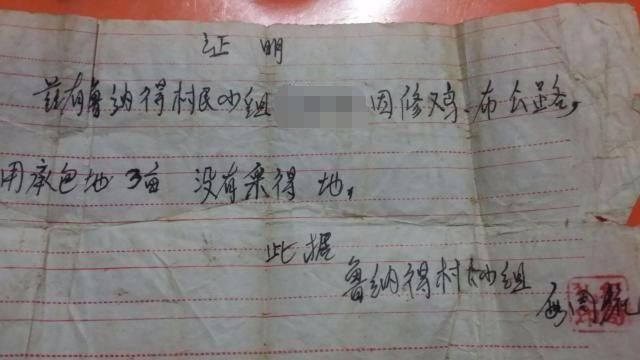 证明
兹有鲁纳得村民小组 因修鸡布公路,
用承包地3亩 没有来得地,
此据
鲁纳得村小组